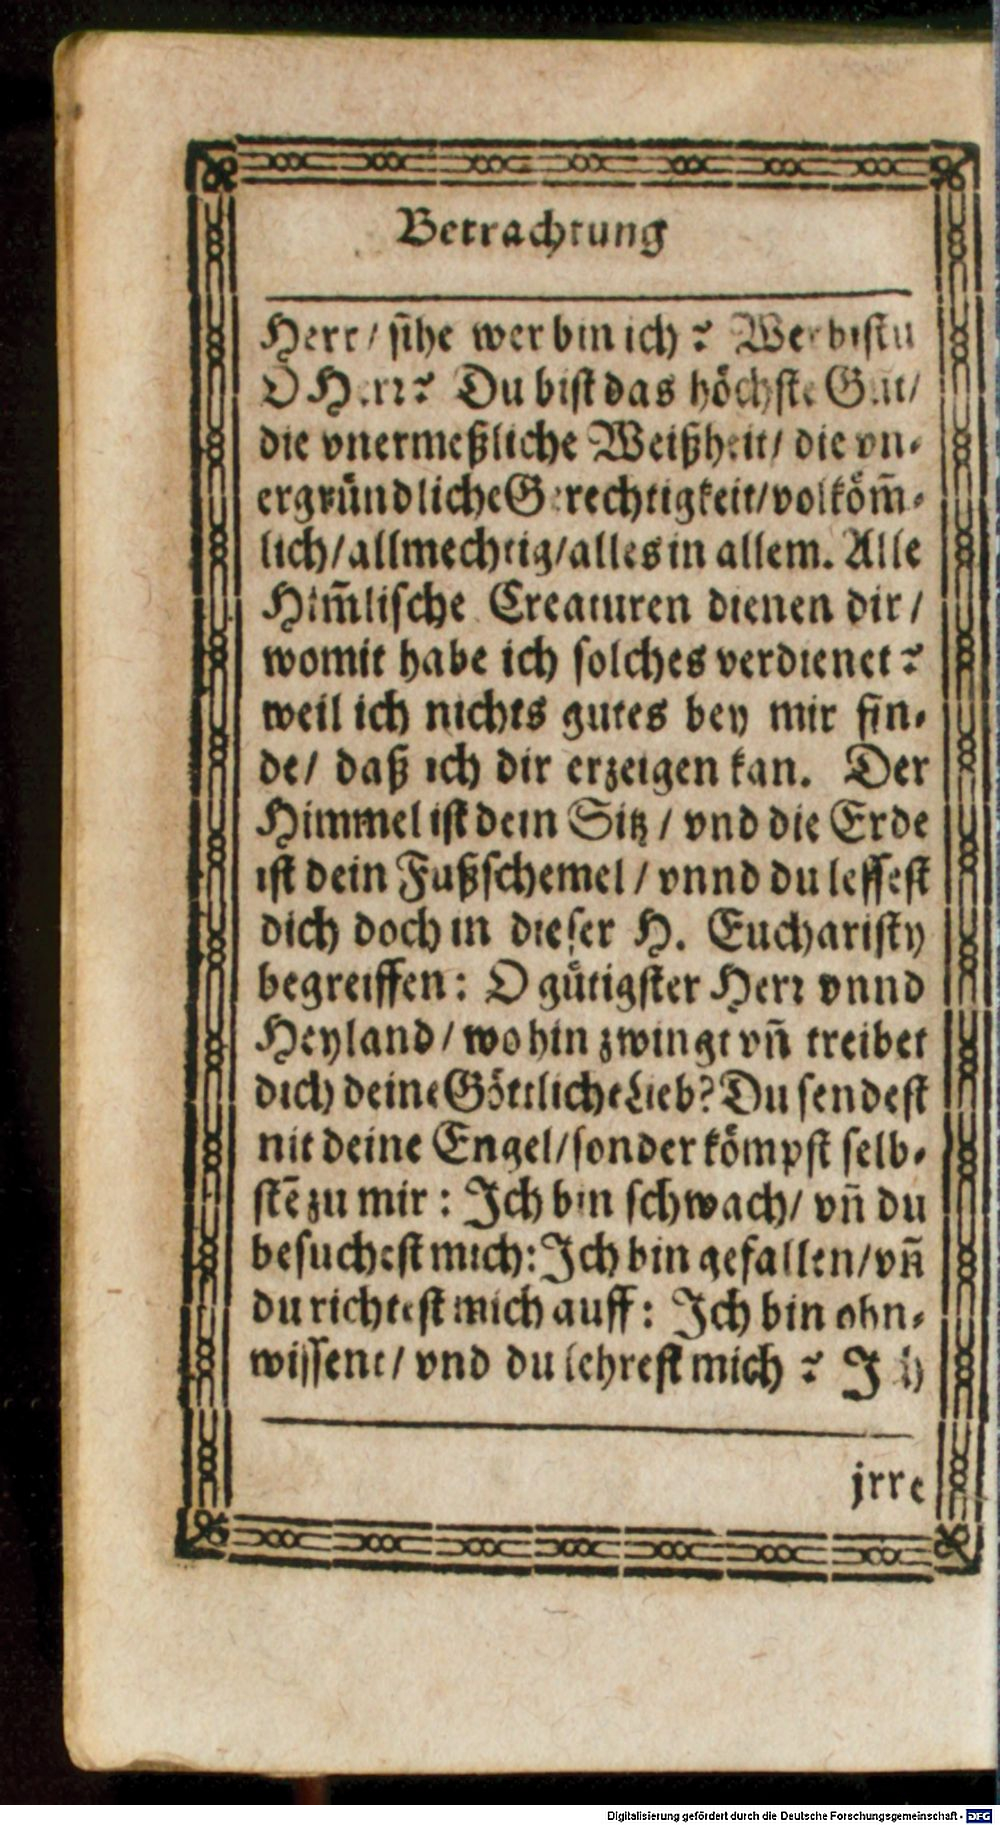 Betrachtung
Herr/ sihe wer bin ich? Wer bistu
O Herr? Du bist das höchste Gut/
die vnermeßliche Weißheit/ die vn-
ergründliche Gerechtigkeit/ volköm̃-
lich/ allmechtig/ alles in allem. Alle
Him̃lische Creaturen dienen dir/
womit habe ich solches verdienet?
weil ich nichts gutes bey mir fin-
de/ daß ich dir erzeigen kan. Der
Himmel ist dein Sitz/ vnd die Erde
ist dein Fußschemel/ vnnd du lessest
dich doch in dieser H. Eucharisty
begreiffen: O gütigster Herr vnnd
Heyland/ wo hin zwingt vñ treibet
dich deine Göttliche Lieb? Du sendest
nit deine Engel/ sonder kömpst selb-
stẽ zu mir: Ich bin schwach/ vñ du
besuchest mich: Ich bin gefallen/ vñ
du richtest mich auff: Ich bin ohn-
wissent/ vnd du lehrest mich? Ich
jrre
Digitalisierung gefördert durch die Deutsche Forschungsgemeinschaft - DFG